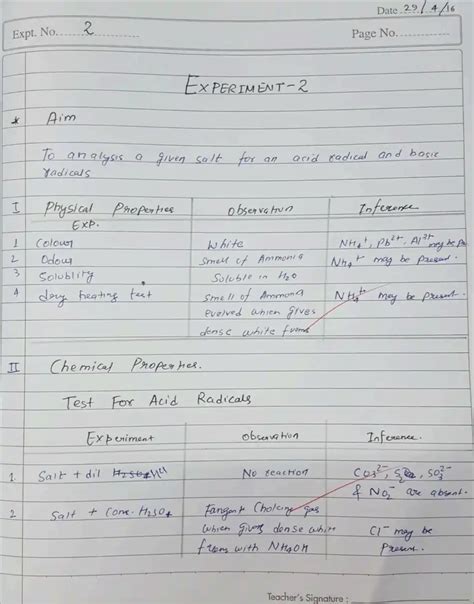 Date 29/4/16
Expt. No. 2 Page No.
EXPERIMENT-2
* Aim
To analysis a given salt for an acid radical and basic
radicals
I Physical Properties Observation Inference
EXP.
1 Colour White NH4+, Pb2+, Al3+ may be
2 Odour Smell of Ammonia NH4+ may be present.
3 Solublity Soluble in H2O
4 dry heating test Smell of Ammonia NH4+ may be present
evolved which gives
dense white fumes
II Chemical Properties.
Test For Acid Radicals
Experiment Observation Inference.
1. Salt + dil No reaction CO3 2-, SO3 2-
& NO2- are absent.
2 Salt + Conc. H2SO4 Choking gas
which gives dense white Cl- may be
fums with NH4OH present.
Teacher's Signature :